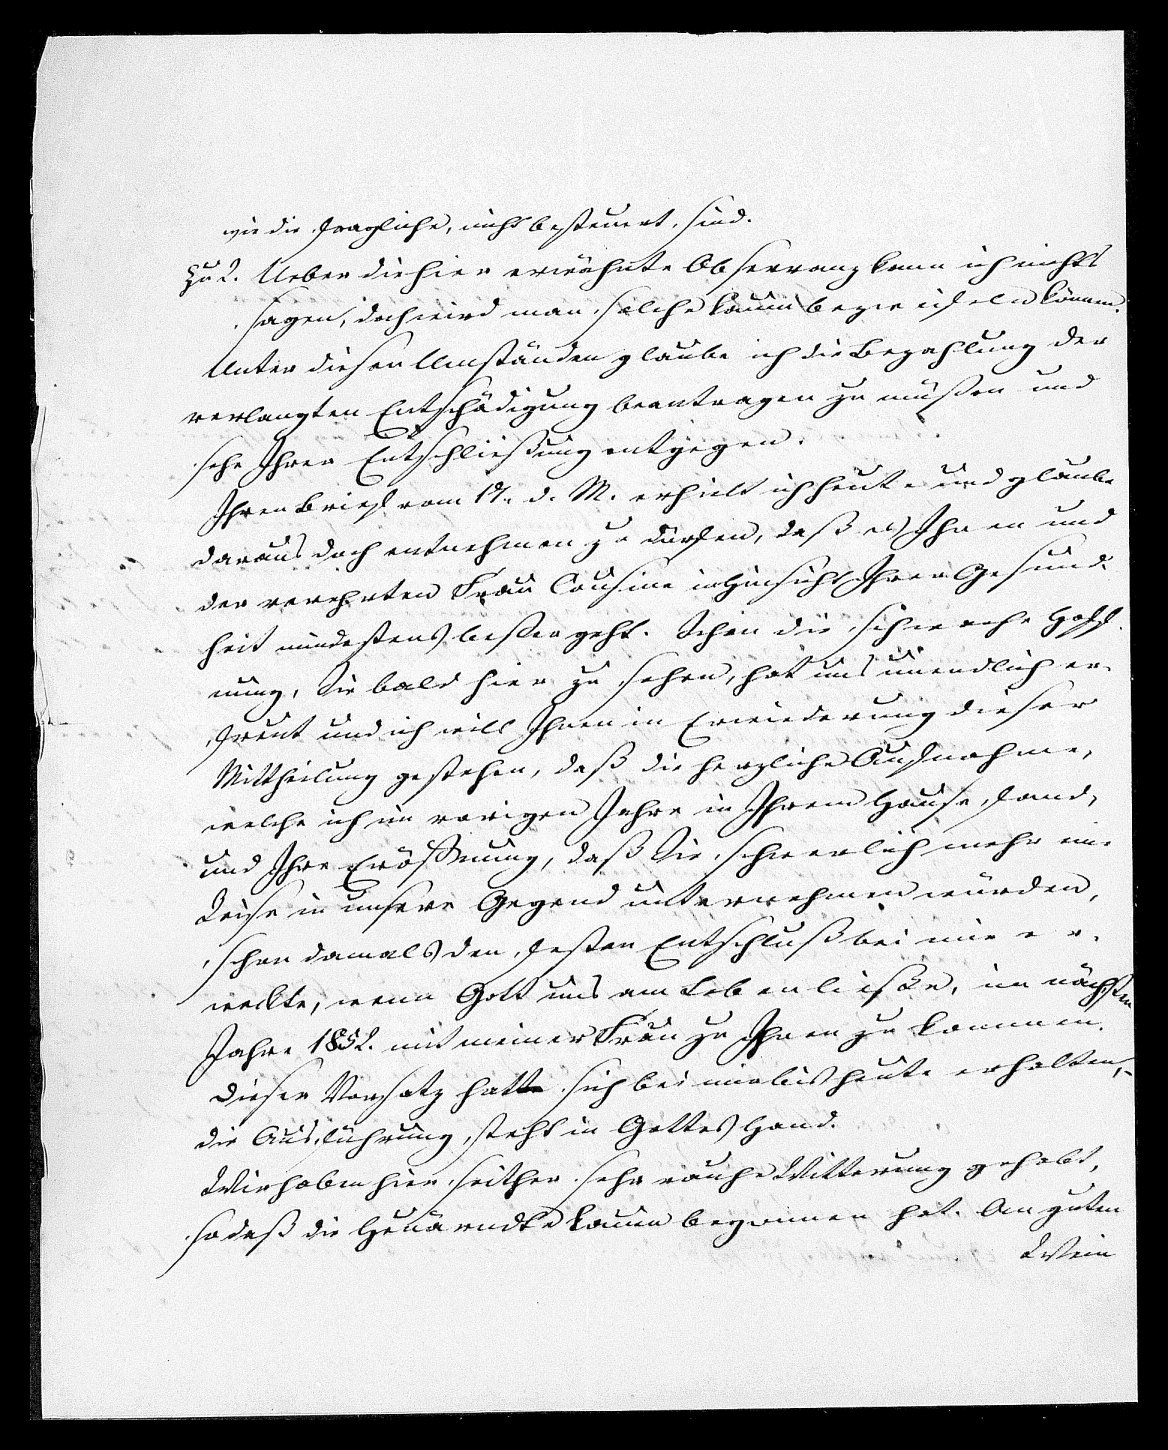 wie die fragliche, nicht besteuert sind.
zu 2. Ueber die hier erwähnte Observanz kann ich nichts
sagen, doch wird man solche kaum bezweifeln können.
Unter diesen Umständen glaube ich die Bezahlung der
verlangten Entschädigung beantragen zu müßen und
sehe Ihrer Entschließung entgegen.
Ihren Brief vom 17. d. M. erhielt ich heute und glaube
daraus doch entnehmen zu dürfen, daß es Ihnen und
der verehrten Frau Cousine in Hinsicht Ihrer Gesund-
heit mindestens beßer geht. Schon die schwache Hoff-
nung, Sie bald hier zu sehen, hat uns unendlich er-
freut und ich will Ihnen in Erwiederung dieser
Mittheilung gestehen, daß die herzliche Aufnahme,
welche ich im vorigen Jahre in Ihrem Hause fand,
und Ihre Eröffnung, daß Sie schwerlich mehr eine
Reise in unsere Gegend unternehmen würden,
schon damals den festen Entschluß bei mir er-
weckte, wenn Gott uns am Leben ließe, im nächsten
Jahre 1852. mit meiner Frau zu Ihnen zu kommen.
Dieser Vorsatz hatte sich bei mir bis heute erhalten,-
die Ausführung steht in Gottes Hand.
Wir haben hier seither sehr rauhe Witterung gehabt,
so daß die Heuärndte kaum begonnen hat. An guten
Wein